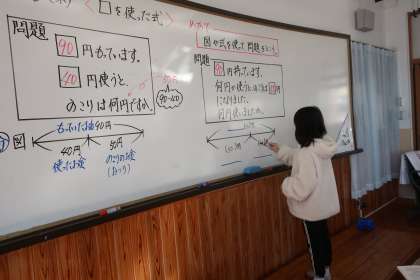 〈□を使った式〉
問題
90円もっています。
40円使うと、
のこりは何円ですか
90-40
図
もっていたお金90円
40円
50円
使ったお金
のこりのお金
図や式を使って問題をとこう。
問題
90円持っています。
何円か使うと、のこりは
円
になりました。
何円使いましたか。